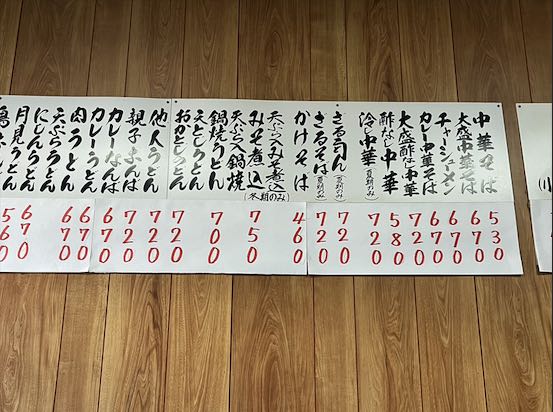 中華そば 530
大盛中華そば 670
チャーシューメン 670
カレー中華そば 670
大盛酢なし中華 780
酢なし中華 580
冷し中華(夏期のみ) 720
ざるうどん(夏期のみ) 720
ざるそば(夏期のみ) 720
かけそば 460
天ぷら入みそ煮込
みそ煮込(冬期のみ) 750
天ぷら入鍋焼
鍋焼うどん 700
天とじうどん
おかとじうどん 720
他人うどん 720
親子なんば 720
カレーなんば 670
カレーうどん 670
肉うどん 670
天ぷらうどん
にしんうどん
月見うどん 670
560